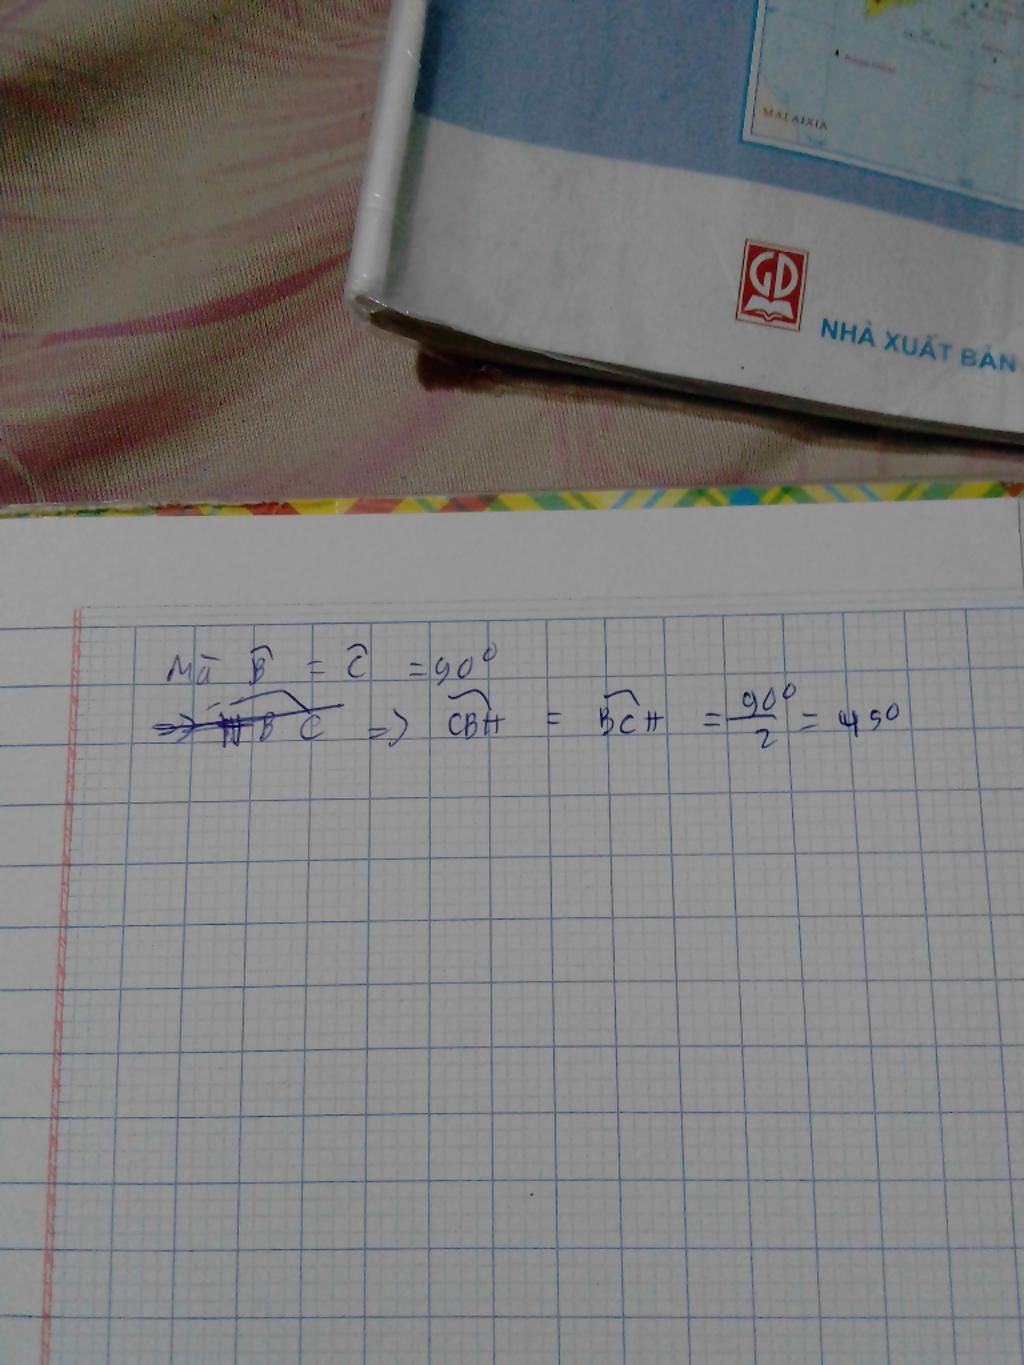 MALAIXIA
GD
NHÀ XUẤT BẢN
Mà B̂ = Ĉ = 90⁰
=> B C => CBH = BCH = 90⁰/2 = 45⁰